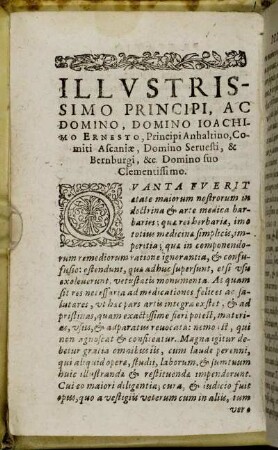 ILLVSTRIS-
SIMO PRINCIPI, AC
DOMINO, DOMINO IOACHI-
MO ERNESTO, Principi Anhaltino, Co-
miti Ascaniæ, Domino Seruesti, &
Bernburgi, &c. Domino suo
Clementissimo.
QVANTA FVERIT
ætate maiorum nostrorum in
doctrina & arte medica bar-
baries; quæ rei herbariæ, imo
totius medicinæ simplicis, im-
peritia; quæ in componendo-
rum remediorum ratione ignorantia, & con-
fusio: ostendunt, quæ adhuc supersunt, etsi vsu
exoleuerunt, vetustatis monumenta. At quam
sit res necessaria ad medicationes felices ac sa-
lutares, vt hæc pars artis integra exstet, & ad
pristinas, quam exactissime fieri potest, materi-
as, vsus, & adparatus reuocata: nemo est, qui
non agnoscat & confiteatur. Magna igitur de-
betur gratia omnibus iis, cum laude perenni,
qui aliquid operæ, studii, laborum, & sumtuum
huic illustrandæ & restituendæ impenderunt.
Cui eo maiori diligentia, cura, & iudicio fuit
opus, quo a vestigiis veterum cum in aliis, tum